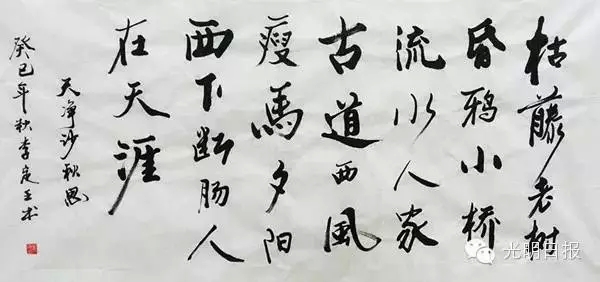 枯藤老树
昏鸦小桥
流水人家
古道西風
瘦馬夕阳
西下断肠人
在天涯
天净沙秋思
癸巳年秋李
光明日报